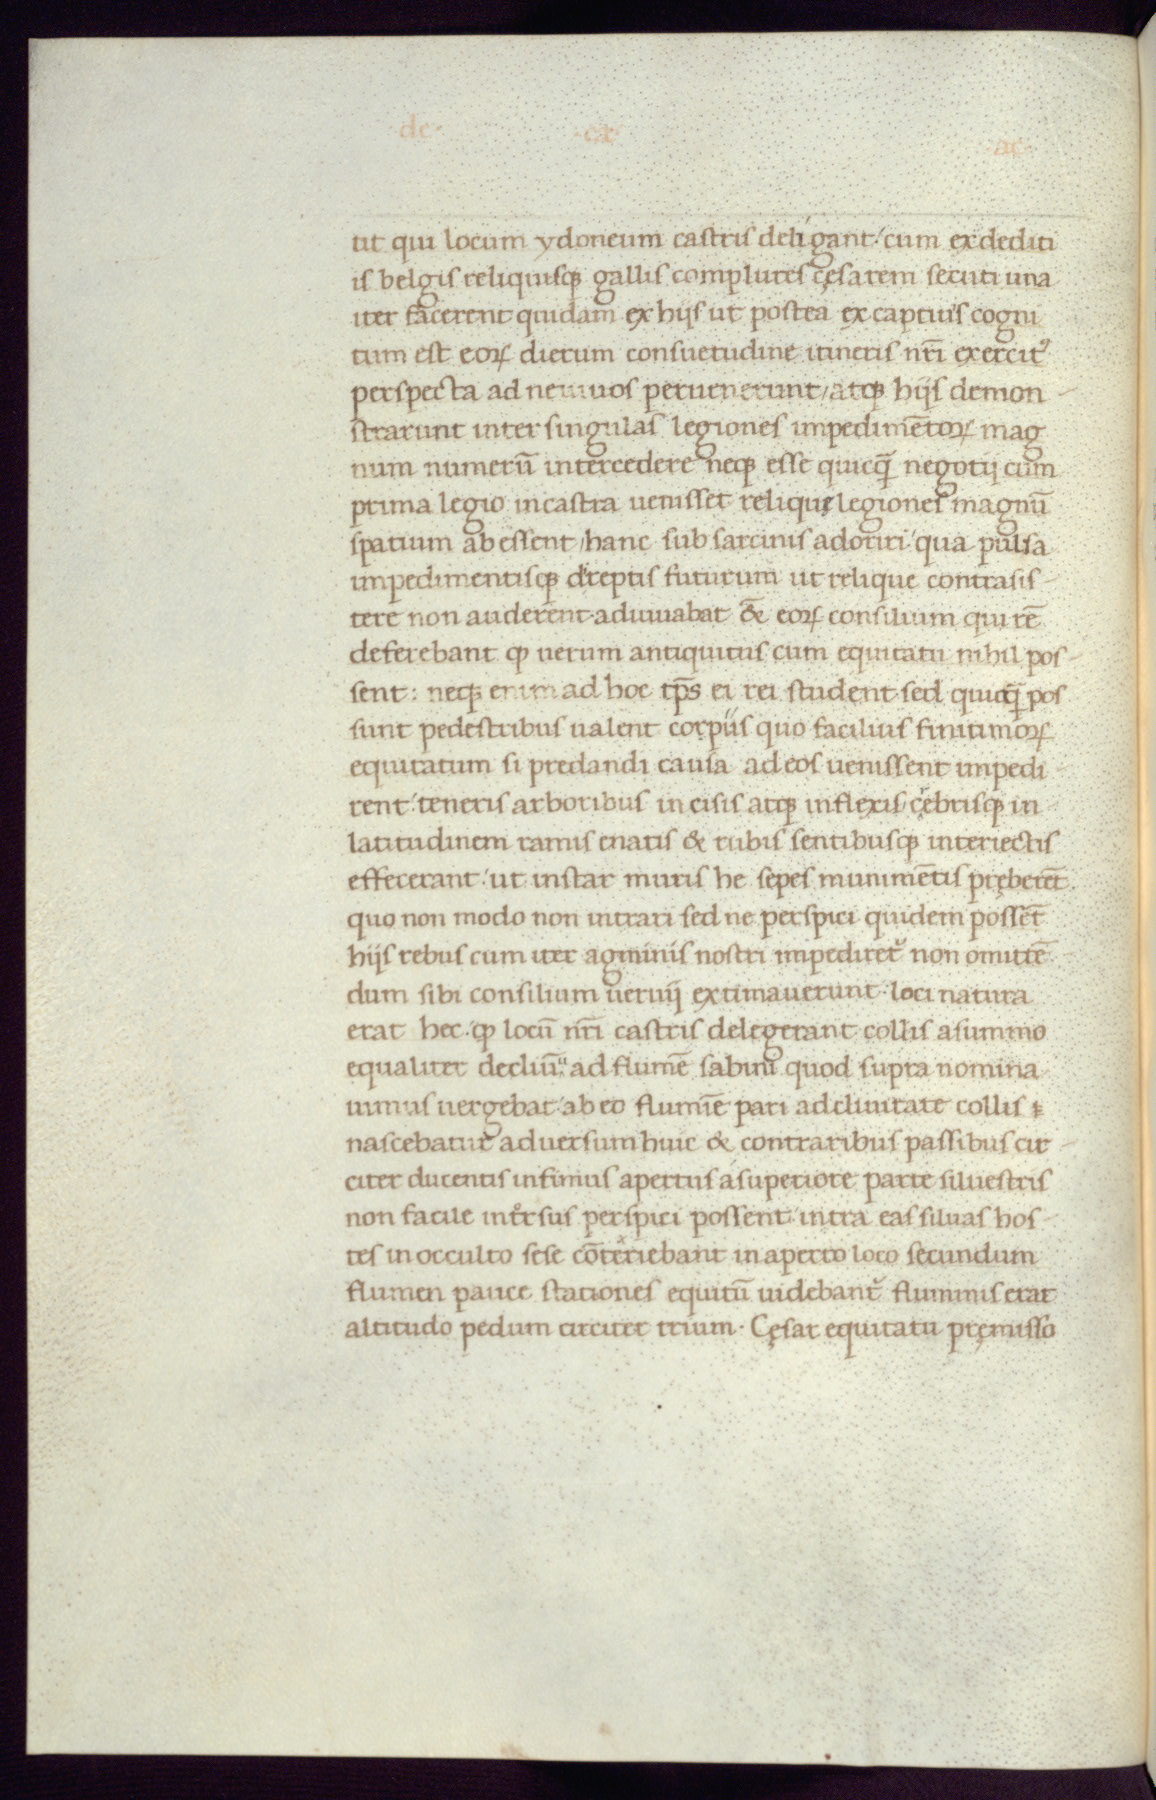 de · ex · ac
tit qui locum ydoneum castris deligant. cum ex dediti
is belgis reliquisqꝫ gallis complures cęsarem secuti una
iter facerent quidam ex hijs ut postea ex captiuis cogni
tum est eoꝝ dierum consuetudine itineris nr̄i exercitꝰ
perspecta ad neruuos peruenerunt, atqꝫ hijs demon-
strarunt inter singulas legiones impedimētoꝝ mag
num numerū intercedere neqꝫ esse quicq̄ negotij cum
prima legio in castra uenisset reliquę legiones magnū
spatium ab essent, hanc sub sarcinis adoriri. qua pulsa
impedimentisqꝫ direptis futurum ut relique contrasis-
tere non auderent. adiuuabat &̄ eoꝝ consilium qui rē
deferebant ꝙ uerum antiquitus cum equitatu nihil pos-
sent: neqꝫ enim ad hoc tp̄s ei rei student. sed quicq̄ pos
sunt pedestribus ualent copiis quo facilius finitimoꝝ
equitatum si predandi causa ad eos uenissent impedi-
rent. teneris arboribus in cisis atqꝫ inflexis, cꝛebrisqꝫ in-
latitudinem ramis enatis & rubis sentibusqꝫ interiectis
effecerant. ut instar muris he sepes munimētis pręberēt.
quo non modo non intrari sed ne perspici quidem possēt
hijs rebus cum iter agminis nostri impediretᷣ non omittē-
dum sibi consilium neruij extimauerunt. loci natura
erat hec. ꝙ locū nr̄i castris delegerant. collis a summo
equaliter decliuis ad flumē sabim quod supra nomina
uimus uergebat. ab eo flumīe pari adcliuitate collis
nascebatur aduersum huic & contraribus passibus cir-
citer ducentis infimus apertus a superiore parte siluestris
non facile introrsus perspici possent. intra eas siluas hos-
tes in occulto sese cōteriebant in aperto loco secundum
flumen pauce stationes equitū uidebantᷣ fluminis erat
altitudo pedum circiter trium. Cęsar equitatu pręmisso